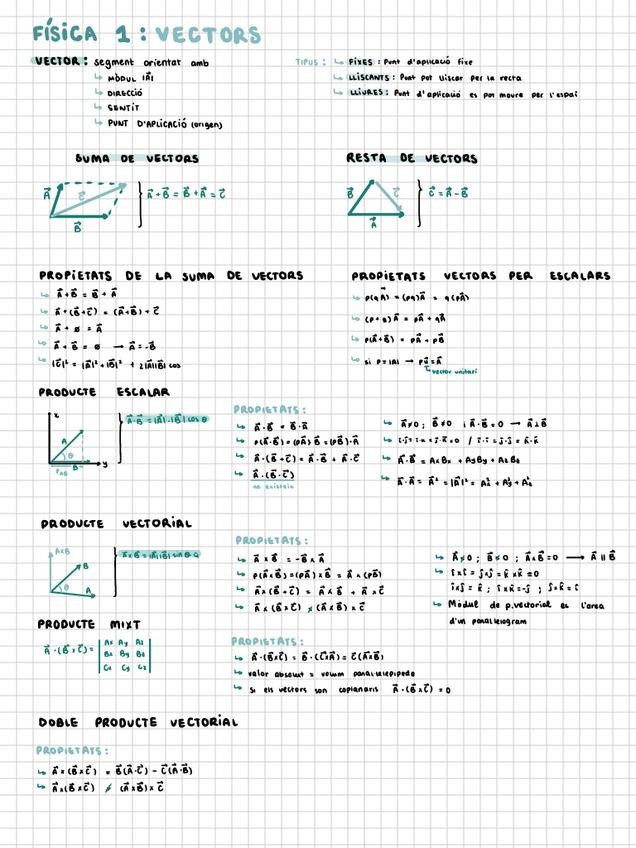 FÍSICA 1 : VECTORS
VECTOR : segment orientat amb
↳ MÒDUL |A⃗|
↳ DIRECCIÓ
↳ SENTIT
↳ PUNT D'APLICACIÓ (origen)
TIPUS : ↳ FIXES : Punt d'aplicació fixe
↳ LLISCANTS : Punt pot lliscar per la recta
↳ LLIURES : Punt d'aplicació es pot moure per l'espai
SUMA DE VECTORS
A⃗ C⃗ B⃗
A⃗ + B⃗ = B⃗ + A⃗ = C⃗
RESTA DE VECTORS
B⃗ C⃗ A⃗
C⃗ = A⃗ - B⃗
PROPIETATS DE LA SUMA DE VECTORS
↳ A⃗ + B⃗ = B⃗ + A⃗
↳ A⃗ + (B⃗ + C⃗) = (A⃗ + B⃗) + C⃗
↳ A⃗ + ø = A⃗
↳ A⃗ + B⃗ = ø → A⃗ = -B⃗
↳ |C⃗|² = |A⃗|² + |B⃗|² + 2|A||B| cos
PROPIETATS VECTORS PER ESCALARS
↳ p(qA⃗) = (pq)A⃗ = q(pA⃗)
↳ (p + q)A⃗ = pA⃗ + qA⃗
↳ p(A⃗ + B⃗) = pA⃗ + pB⃗
↳ si p = |A| → pu⃗ = A⃗
vector unitari
PRODUCTE ESCALAR
A θ B y
A⃗ · B⃗ = |A⃗| · |B⃗| cos θ
PROPIETATS :
↳ A⃗ · B⃗ = B⃗ · A⃗
↳ p(A⃗ · B⃗) = (pA⃗) B⃗ = (pB⃗) · A⃗
↳ A⃗ · (B⃗ + C⃗) = A⃗ · B⃗ + A⃗ · C⃗
↳ A⃗ · (B⃗ · C⃗)
no existeix
↳ A⃗ ≠ 0 ; B⃗ ≠ 0 i A⃗ · B⃗ = 0 → A⃗ ⊥ B⃗
↳ A⃗ · B⃗ = AxBx + AyBy + AzBz
↳ A⃗ · A⃗ = A⃗² = |A⃗|² = Ax² + Ay² + Az²
PRODUCTE VECTORIAL
AxB B θ A
PROPIETATS :
↳ A⃗ x B⃗ = -B⃗ x A⃗
↳ p(A⃗ x B⃗) = (pA⃗) x B⃗ = A⃗ x (pB⃗)
↳ A⃗ x (B⃗ + C⃗) = A⃗ x B⃗ + A⃗ x C⃗
↳ A⃗ x (B⃗ x C⃗) ≠ (A⃗ x B⃗) x C⃗
↳ A⃗ ≠ 0 ; B⃗ ≠ 0 ; A⃗ x B⃗ = 0 → A⃗ || B⃗
↳ i⃗ x i⃗ = j⃗ x j⃗ = k⃗ x k⃗ = 0
i⃗ x j⃗ = k⃗ ; i⃗ x k⃗ = -j⃗ ; j⃗ x k⃗ = i⃗
↳ Mòdul de p.vectorial es l'àrea
d'un paral·lelogram
PRODUCTE MIXT
A⃗ · (B⃗ x C⃗) =
Ax Ay Az
Bx By Bz
Cx Cy Cz
PROPIETATS :
↳ A⃗ · (B⃗ x C⃗) = B⃗ · (C⃗ x A⃗) = C⃗ (A⃗ x B⃗)
↳ valor absolut = volum paral·lelepípede
↳ si els vectors son coplanaris A⃗ · (B⃗ x C⃗) = 0
DOBLE PRODUCTE VECTORIAL
PROPIETATS :
↳ A⃗ x (B⃗ x C⃗) = B⃗ (A⃗ · C⃗) - C⃗ (A⃗ · B⃗)
↳ A⃗ x (B⃗ x C⃗) ≠ (A⃗ x B⃗) x C⃗